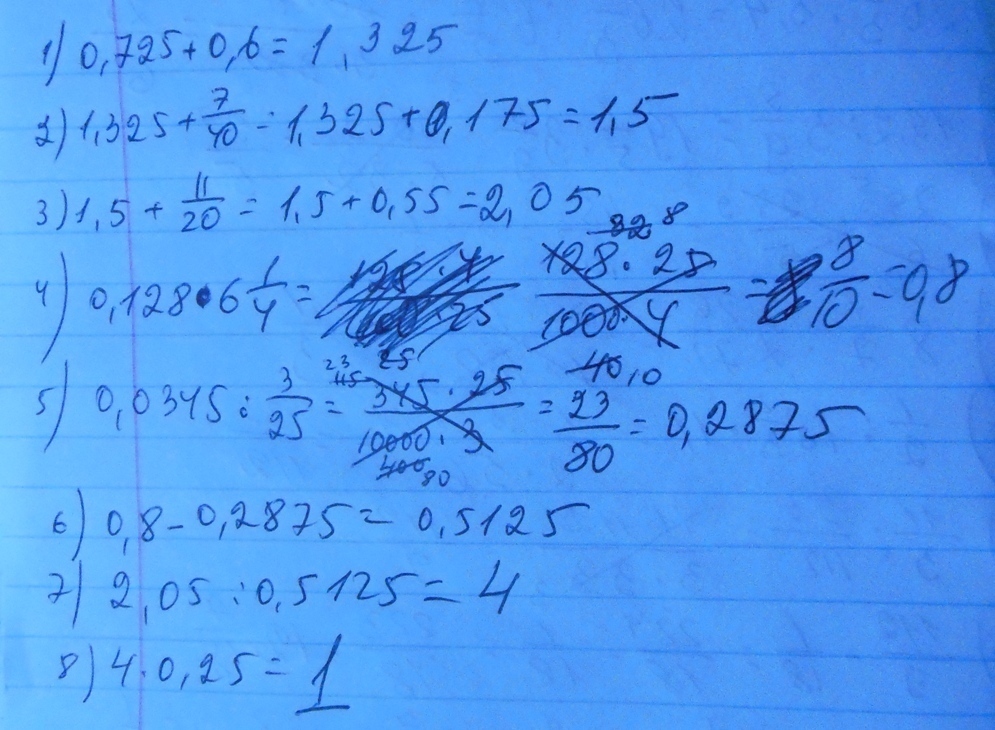 1) 0,725 + 0,6 = 1,325
2) 1,325 + 7/40 = 1,325 + 0,175 = 1,5
3) 1,5 + 11/20 = 1,5 + 0,55 = 2,05
4) 0,128 • 6 1/4 = 128 · 25 / 1000 · 4 = 8/10 = 0,8
32 8
40 10
5) 0,0345 : 3/25 = 345 · 25 / 10000 · 3 = 23/80 = 0,2875
23 115 25
400 80
6) 0,8 - 0,2875 = 0,5125
7) 2,05 : 0,5125 = 4
8) 4 · 0,25 = 1